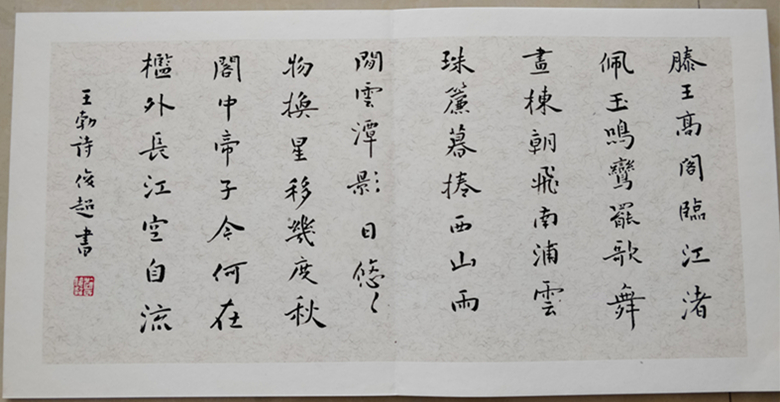 滕王高阁臨江渚
佩玉鳴鸞罷歌舞
畫棟朝飛南浦雲
珠簾暮捲西山雨
閒雲潭影日悠々
物換星移幾度秋
閣中帝子今何在
檻外長江空自流
王勃詩 俊超書